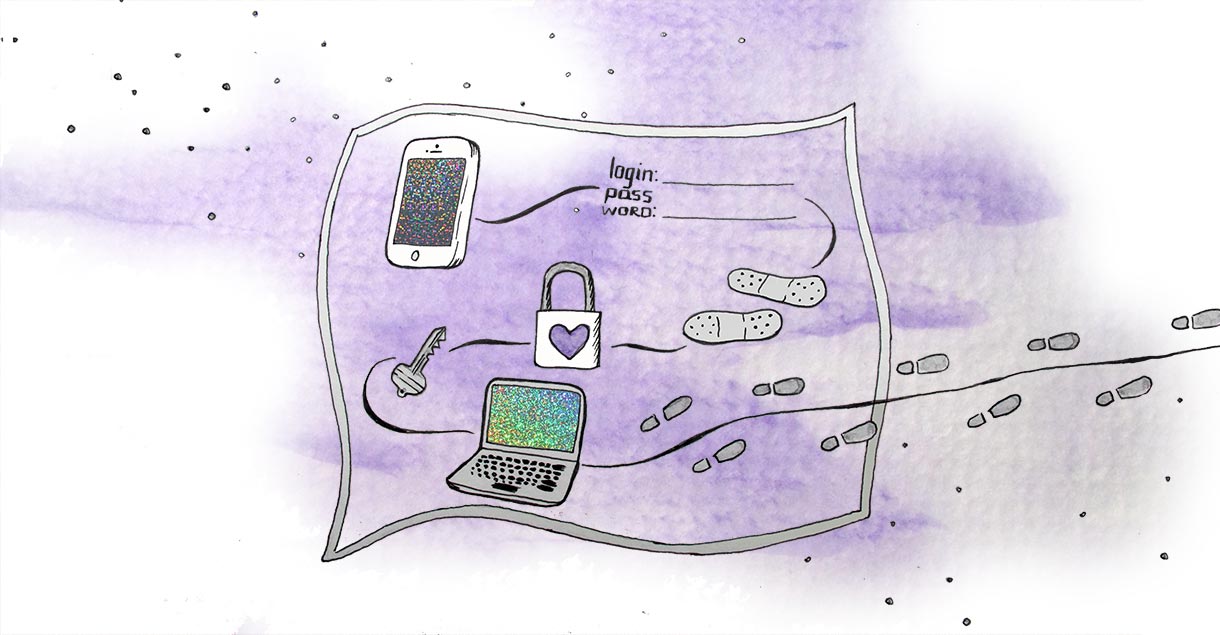 login:
pass
WORD: